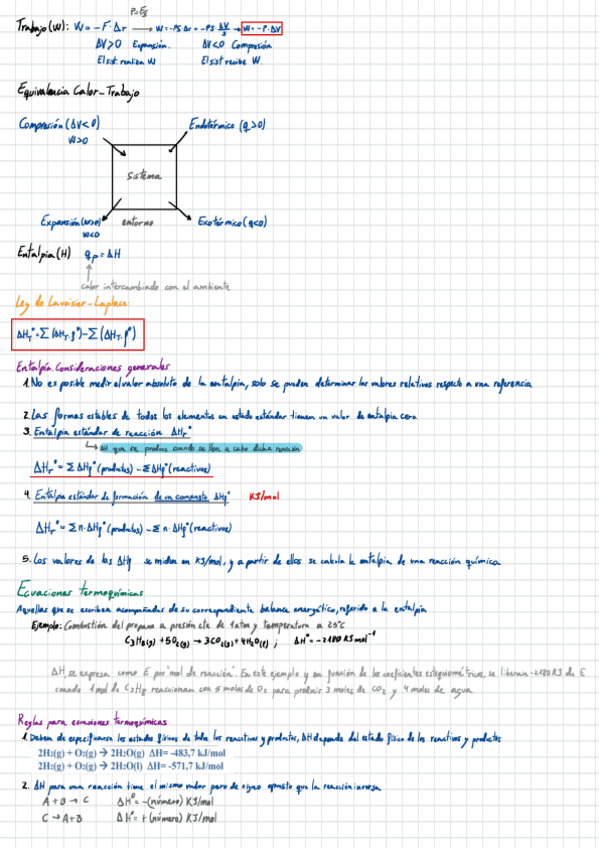 P=F/S
Trabajo (W): W = -F·Δr → W=-PS·Δr = -PS·ΔV/S → W=-P·ΔV
ΔV>0 Expansión. ΔV<0 Compresión
El sist. realiza W El sist recibe W.
Equivalencia Calor-Trabajo
Compresión (ΔV<0) Endotérmico (q>0)
W>0
Sistema
Expansión (ΔV>0) entorno Exotérmico (q<0)
W<0
Entalpia (H) qp = ΔH
calor intercambiado con el ambiente
Ley de Lavoisier-Laplace:
Entalpía. Consideraciones generales
1. No es posible medir el valor absoluto de la entalpia, solo se pueden determinar los valores relativos respecto a una referencia
2. Las formas estables de todos los elementos en estado estándar tienen un valor de entalpía cero
3. Entalpía estándar de reacción ΔHr°
ΔH que se produce cuando se lleva a cabo dicha reacción
ΔHr° = Σ ΔHf° (productos) - Σ ΔHf° (reactivos)
4. Entalpía estándar de formación de un compuesto ΔHf° KJ/mol
ΔHr° = Σn·ΔHf° (productos) - Σn·ΔHf° (reactivos)
5. Los valores de las ΔHf se miden en KJ/mol, y a partir de ellos se calcula la entalpia de una reacción química.
Ecuaciones termoquímicas
Aquellas que se escriben acompañadas de su correspondiente balance energético, referido a la entalpia
Ejemplo: Combustión del propano a presión cte de 1 atm y temperatura a 25°C
C3H8(g) + 5O2(g) → 3CO2(g) + 4H2O(l) ; ΔH° = -2180 KJ mol⁻¹
ΔH, se expresa como E por "mol de reacción". En este ejemplo y en función de los coeficientes estequiométricos, se liberan -2180 KJ de E
cuando 1 mol de C3H8 reaccionan con 5 moles de O2 para producir 3 moles de CO2 y 4 moles de agua
Reglas para ecuaciones termoquímicas
1. Deben de especificarse los estados físicos de todos los reactivos y productos, ΔH depende del estado físico de los reactivos y productos
2H₂(g) + O₂(g) → 2H₂O(g) ΔH= -483,7 kJ/mol
2H₂(g) + O₂(g) → 2H₂O(l) ΔH= -571,7 kJ/mol
2. ΔH para una reacción tiene el mismo valor pero de signo opuesto que la reacción inversa
A + B → C ΔH° = -(número) KJ/mol
C → A + B ΔH° = +(número) KJ/mol